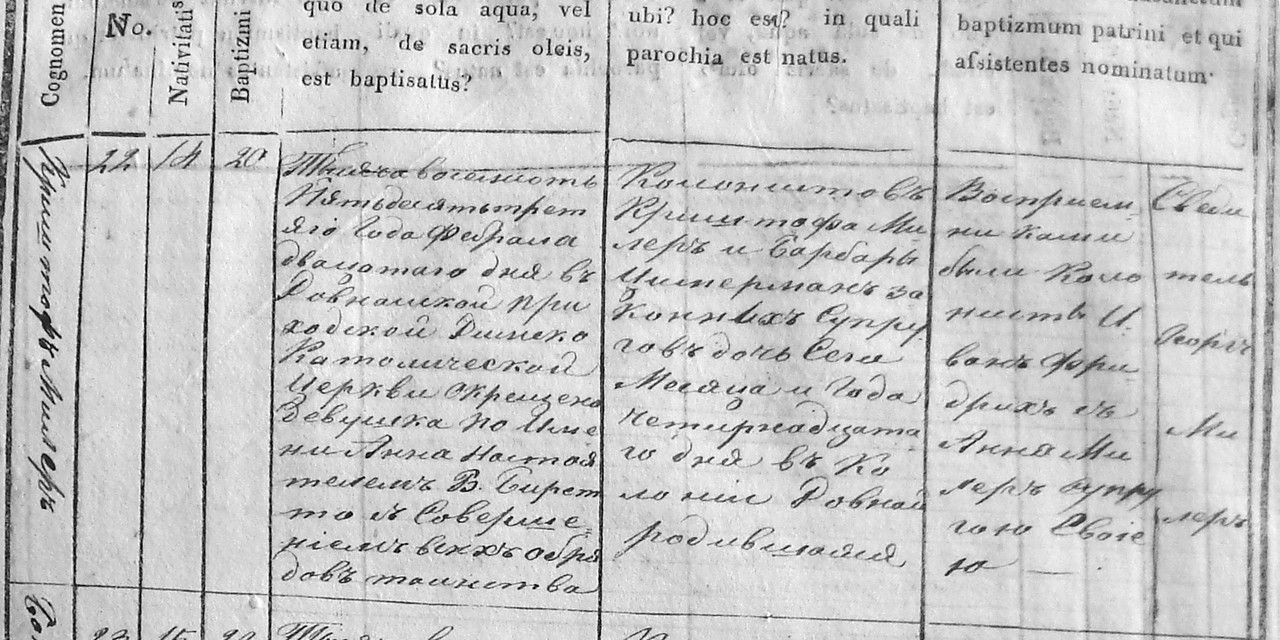 Cognomen
No.
Nativitatis
Baptizmi
quo de sola aqua, vel
etiam, de sacris oleis,
est baptisatus?
ubi? hoc est? in quali
parochia est natus.
baptizmum patrini et qui
afsistentes nominatum
Криштофъ Милеръ
22 14 20
Тысяча восемьсотъ
Пятьдесятътрет
яго Года Февраля
двадцатаго дня въ
Ровнамской При
ходской Римско
Католической
Церкви Окрещена
Девушка по Име
ни Анна Настоя
телемъ В. Бирет
то съ Соверше
ніемъ всехъ обря
довъ таинства
Колонистовъ
Криштофа Ми
леръ и Барбары
Цимерманъ за
Конныхъ Супру
говъ дочь Сего
Месяца и Года
четырнадцата
го дня въ Ко
лоніи Ровной
родившаяся
Восприем
никами
были Коло
нистъ И
ванъ Фри
дрихъ съ
Анна Ми
леръ супру
гою Своіе
ю —
Свеи
тель
Георгъ
Ми
леръ
23 15